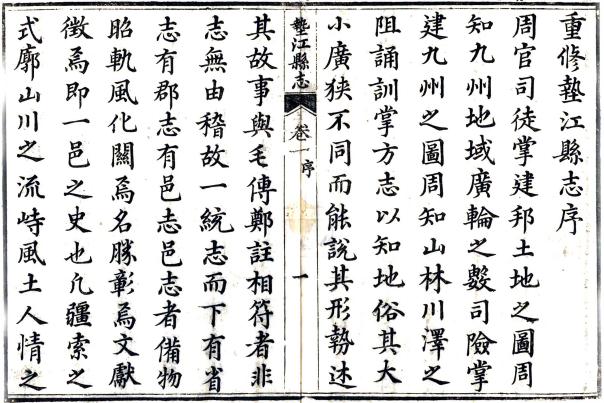 重修墊江縣志序
周官司徒掌建邦土地之圖周
知九州地域廣輪之數司險掌
建九州之圖周知山林川澤之
阻誦訓掌方志以知地俗其大
小廣狹不同而能說其形勢述
墊江縣志 卷一 序 一
其故事與毛傳鄭註相符者非
志無由稽故一統志而下有省
志有郡志有邑志邑志者備物
昭軌風化關焉名勝彰焉文獻
徵焉即一邑之史也凡疆索之
式廓山川之流峙風土人情之